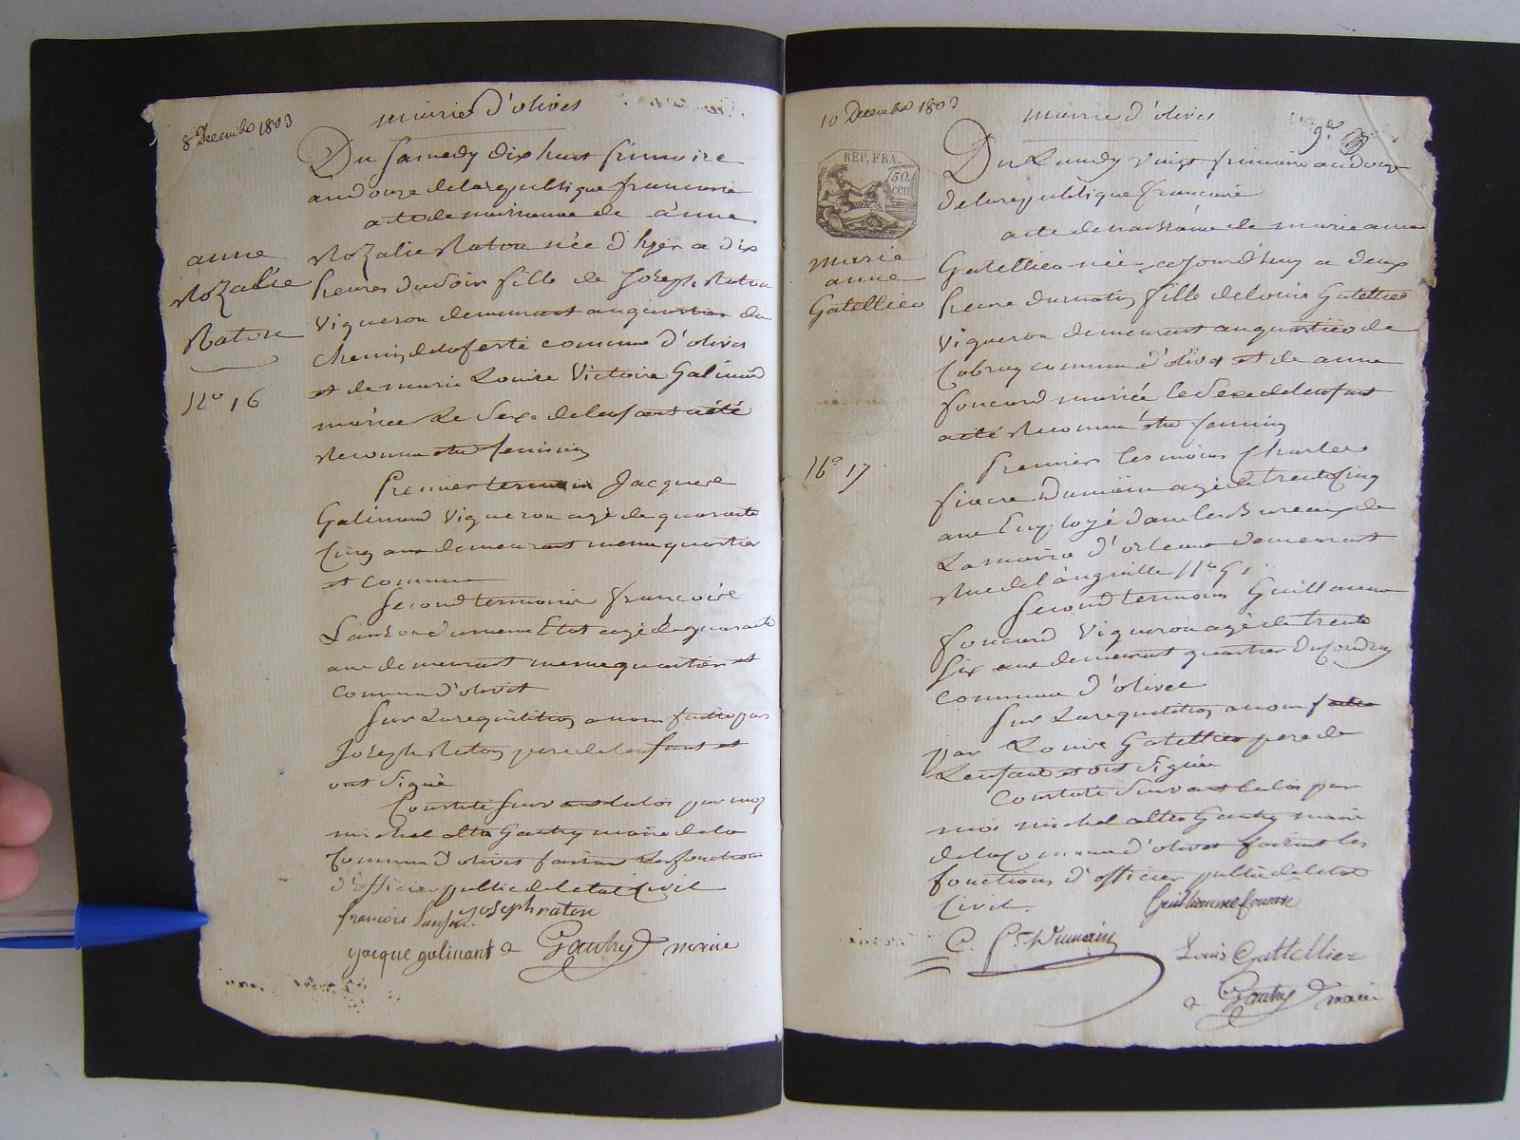 8 Decembre 1803
mairie d'olivet
Du Samedy dix huit frimaire
an douze de la republique francaise
acte de naissance de anne
Rozalie Raton née d'hyer a dix
heures du soir fille de Joseph Raton
Vigneron demeurant au quartier du
chemin de la ferté commune d'olivet
et de marie Louise Victoire Galinand
mariée Le Sexe de lenfant a été
Reconnu etre feminin
anne
Rozalie
Raton
No 16
Premier temoin Jacques
Galinand Vigneron agé de quarante
Cinq ans demeurant meme quartier
et commune
Second temoin francoise
du meme Etat agé de quarante
ans demeurant meme quartier et
commune d'olivet
Sur La requisition a nous faitte par
Joseph Raton pere de lenfant et
ont Signé
Constaté Suivant la loi par moy
michel Gautry maire de la
Commune d'olivet faisant Les fonction
d'officier public de letat Civil
francois joseph raton
jacque galinant Gautry maire
10 Decembre 1803
mairie d'olivet
9e
REP. FRA.
50.
cen
Du Lundy vingt frimaire an douze
de la republique francaise
acte de naissance de marie anne
Gatellier née cejourd'huy a deux
heure du matin fille de louis Gatellier
Vigneron demeurant au quartier de
Cobray commune d'olivet et de anne
foucard mariée le Sexe de lenfant
a eté Reconnu etre feminin
marie
anne
Gatellier
No 17
Premier temoin Charles
Dumain agé de trente Cinq
ans Employé dans les Bureaux de
La mairie d'orleans demeurant
Rue de l'anguille No
Second temoin Guillaume
foucard Vigneron agé de trente
Six ans demeurant quartier du
commune d'olivet
Sur La requisition a nous faitte
par Louis Gatellier pere de
Lenfant et ont Signé
Constaté Suivant la loi par
moi michel Gautry maire
de la Commune d'olivet faisant les
fonctions d'officier public de letat
Civil.
Guilliaume
C. Dumain
Louis Gattellier
Gautry maire